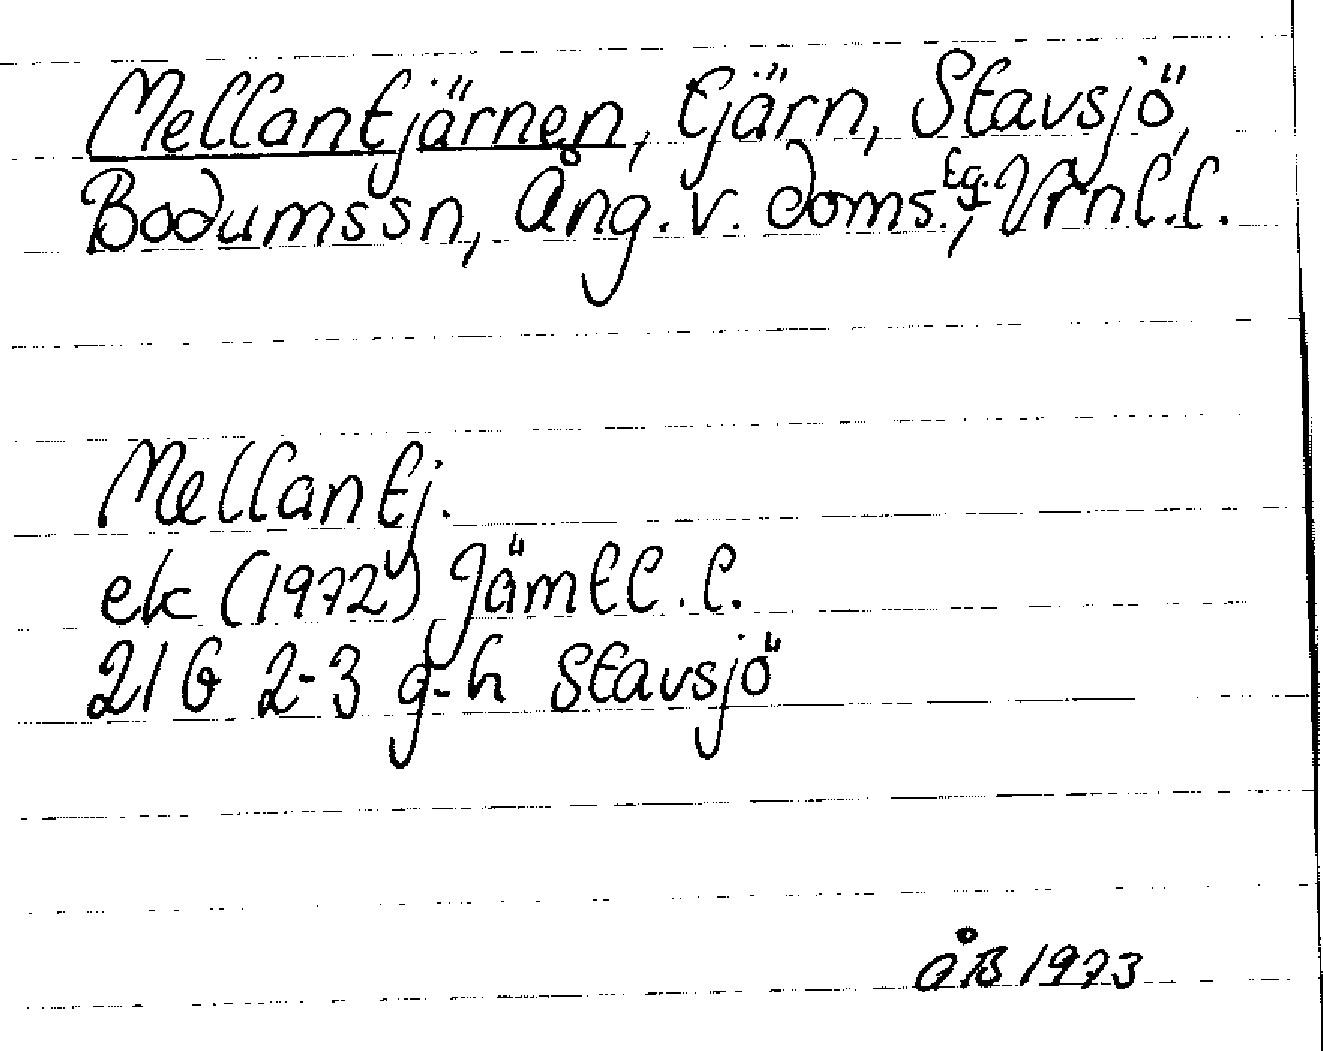 Mellantjärnen, tjärn, Stavsjö,
Bodumssn, Ång. v. doms. tg., Vrnl.l.
Mellantj.
ek (1972) Jämtl.l.
21G 2-3 g-h Stavsjö
ÅB 1973